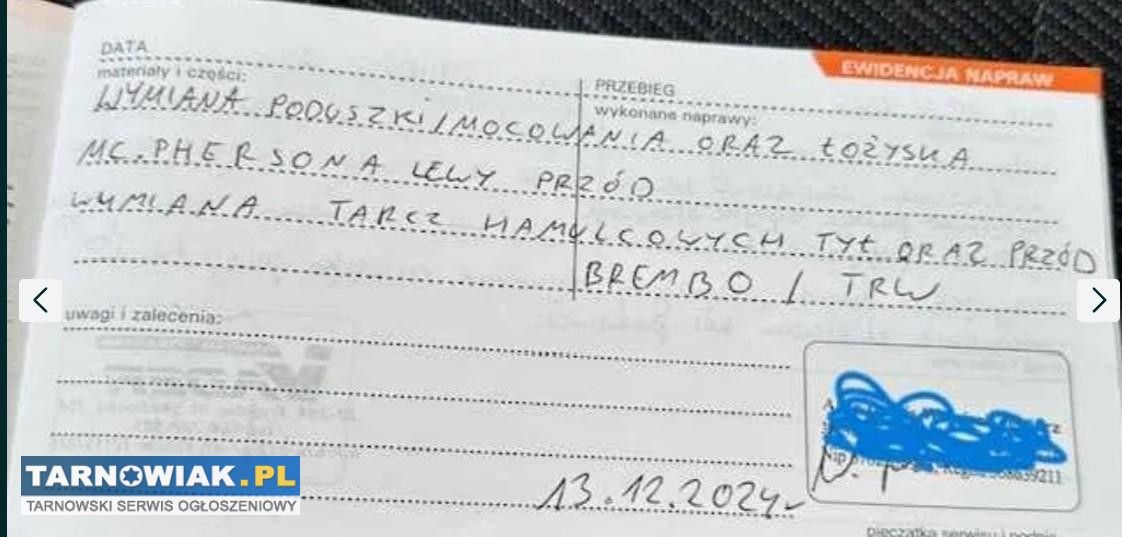 DATA
EWIDENCJA NAPRAW
materiały i części:
PRZEBIEG
wykonane naprawy:
WYMIANA PODUSZKI/MOCOWANIA ORAZ ŁOŻYSKA
MC.PHERSONA LEWY PRZÓD
WYMIANA TARCZ HAMULCOWYCH TYŁ ORAZ PRZÓD
BREMBO / TRW
uwagi i zalecenia:
13.12.2024r
TARNOWIAK.PL
TARNOWSKI SERWIS OGŁOSZENIOWY
pieczątka serwisu i podpis